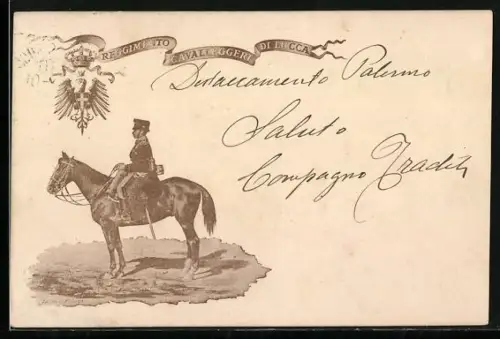 REGGIMENTO CAVALLEGGERI DI LUCCA
Distaccamento Palermo
Saluto
Compagno